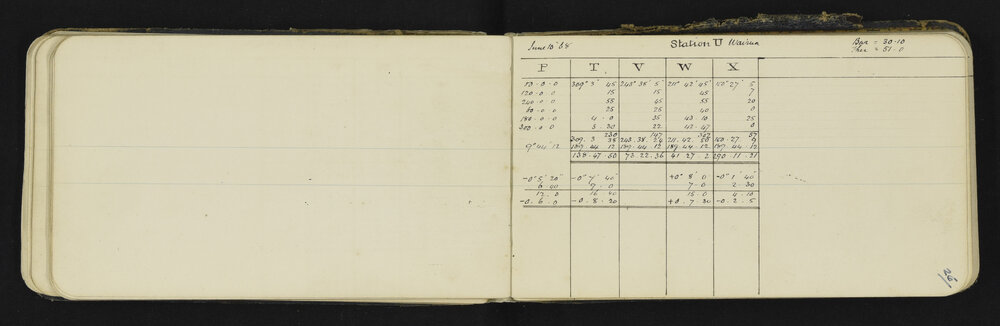 June 10 '68 Station U Wairua Bar = 30.10
Ther = 51.0
P T V W X
0.0 309° 3' 45 243° 38' 5" 211° 42' 45" 27' 5
120.0.0 15 15 45 7
240.0.0 55 45 55 20
60.0.0 25 25 40 0
180.0.0 4.0 35 43.10 25
300.0.0 3.20 22 42.47 0
230 147 57
309.3.38 243.38.24 211.42.50 27.9
9°44'12 44.12 44.12 44.12 44.12
138.47.50 73.22.36 41.27.2 290.11.21
-0° 5' 20" -0° 7' 40" +0° 8' 0 -0° 1' 40"
6.40 9.0 7.0 2.30
12.0 16.40 15.0 4.10
-0.6.0 -0.8.20 +0.7.30 -0.2.5
26